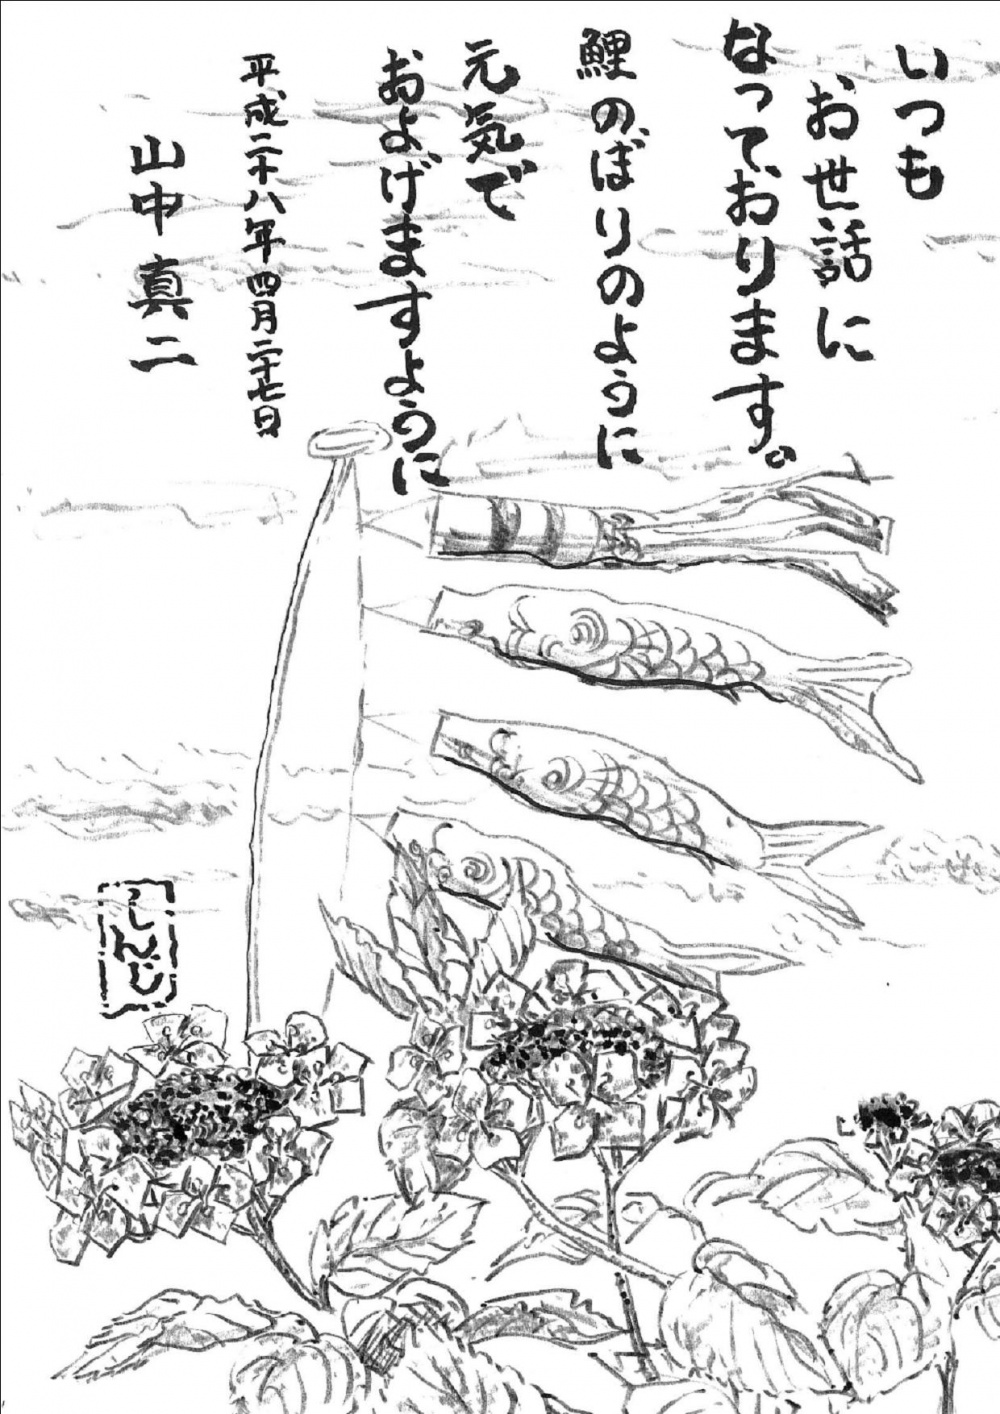 いつも
お世話に
なっております。
鯉のぼりのように
元気で
およげますように
平成二十八年四月二十七日
山中真二
しんじ